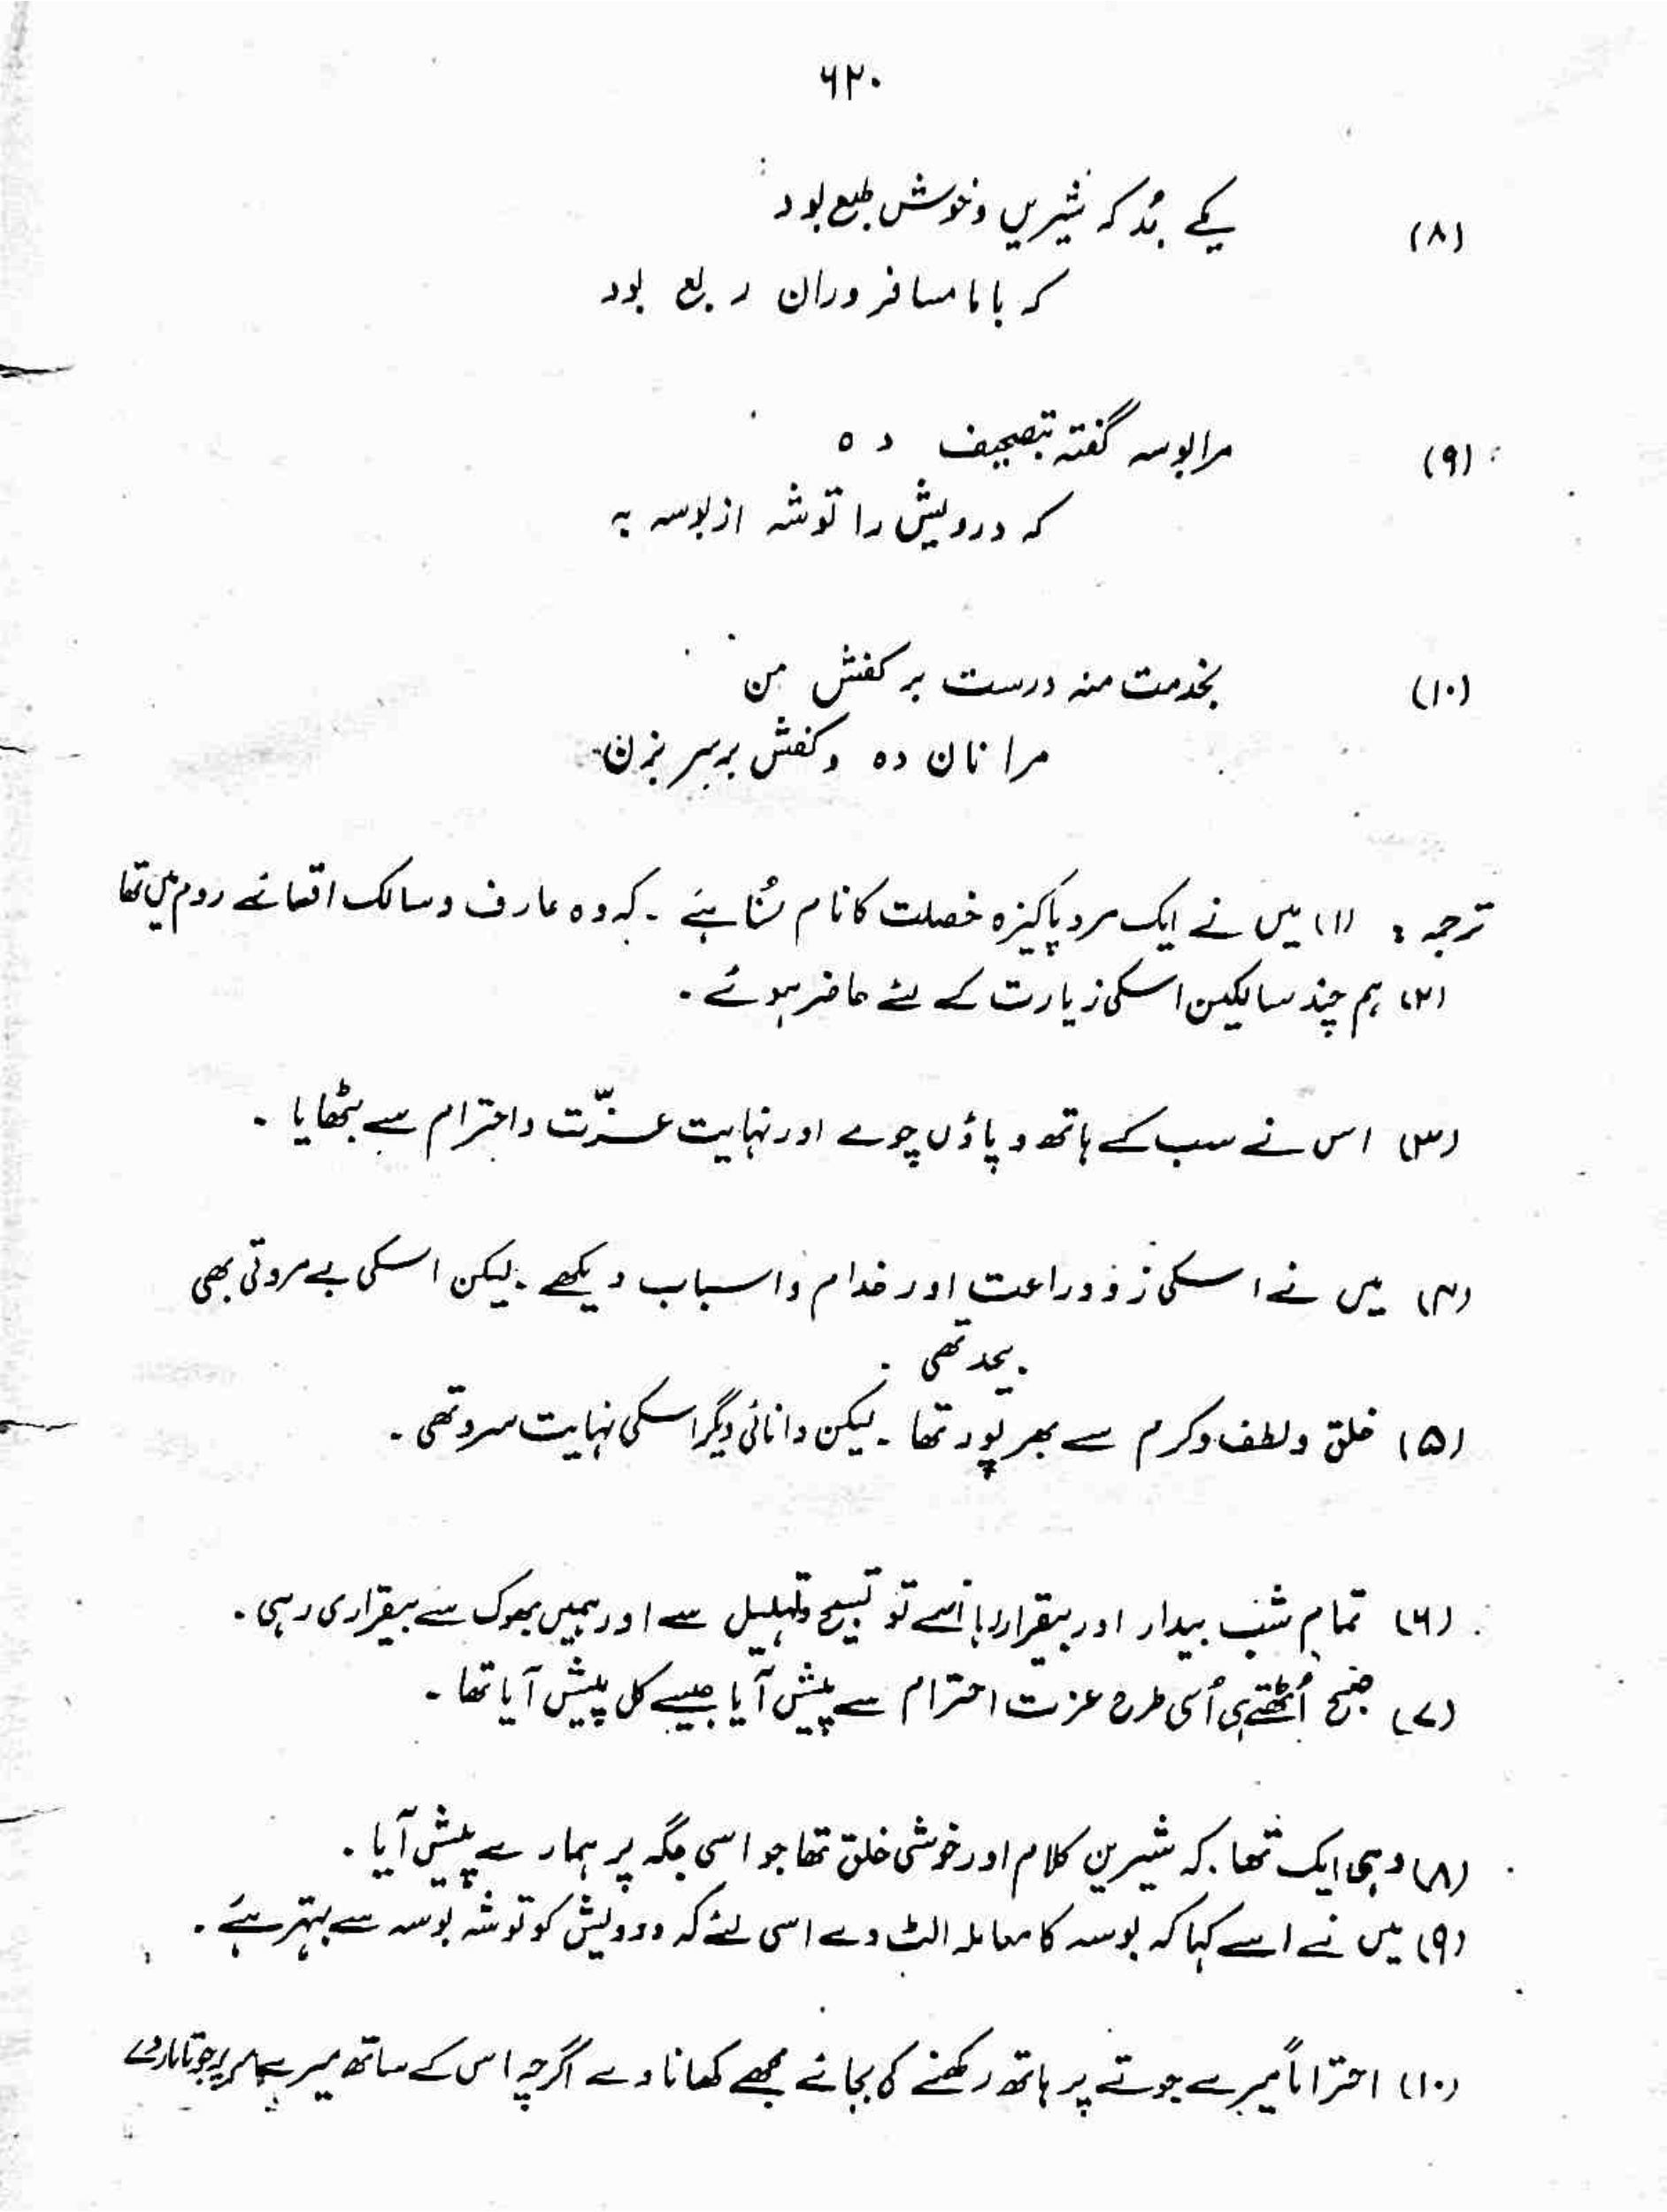 ۶۲۰
(۸) یکے بُد کہ شیریں و خوش طبع بود
کہ با ما مسافر و ران ر بع بود
(۹) مرا بوسہ گفتہ بتصحیف دہ
کہ درویش را توشہ از بوسہ بہ
(۱۰) بخدمت منہ درست بر کفش من
مرا نان دہ و کفش برسر بزن
ترجمہ : (۱) میں نے ایک مرد پاکیزہ خصلت کا نام سُنا ہے ۔ کہ وہ عارف و سالک اقصائے روم میں تھا
(۲) ہم چند سالکین اسکی زیارت کے لئے حاضر ہوئے ۔
(۳) اس نے سب کے ہاتھ و پاؤں چومے اور نہایت عزّت و احترام سے بٹھایا ۔
(۴) میں نے اسکی زر و زراعت اور خدام و اسباب دیکھے ۔ لیکن اسکی بے مروتی بھی
بیحد تھی ۔
(۵) خلق و لطف و کرم سے بھر پور تھا ۔ لیکن دانائی دیگر اسکی نہایت سرد تھی ۔
(۶) تمام شب بیدار اور بیقرار رہا اُسے تو تسبیح و تہلیل سے اور ہمیں بھوک سے بیقراری رہی ۔
(۷) صبح اُٹھتے ہی اُسی طرح عزت احترام سے پیش آیا جیسے کل پیش آیا تھا ۔
(۸) وہی ایک تھا کہ شیرین کلام اور خوشی خلق تھا جو اسی جگہ پر ہمارے پیش آیا ۔
(۹) میں نے اسے کہا کہ بوسہ کا معاملہ الٹ دے اسی لئے کہ درویش کو توشہ بوسہ سے بہتر ہے ۔
(۱۰) احتراماً میرے جوتے پر ہاتھ رکھنے کی بجائے مجھے کھانا دے اگرچہ اس کے ساتھ میرے سر پر جوتا مار دے